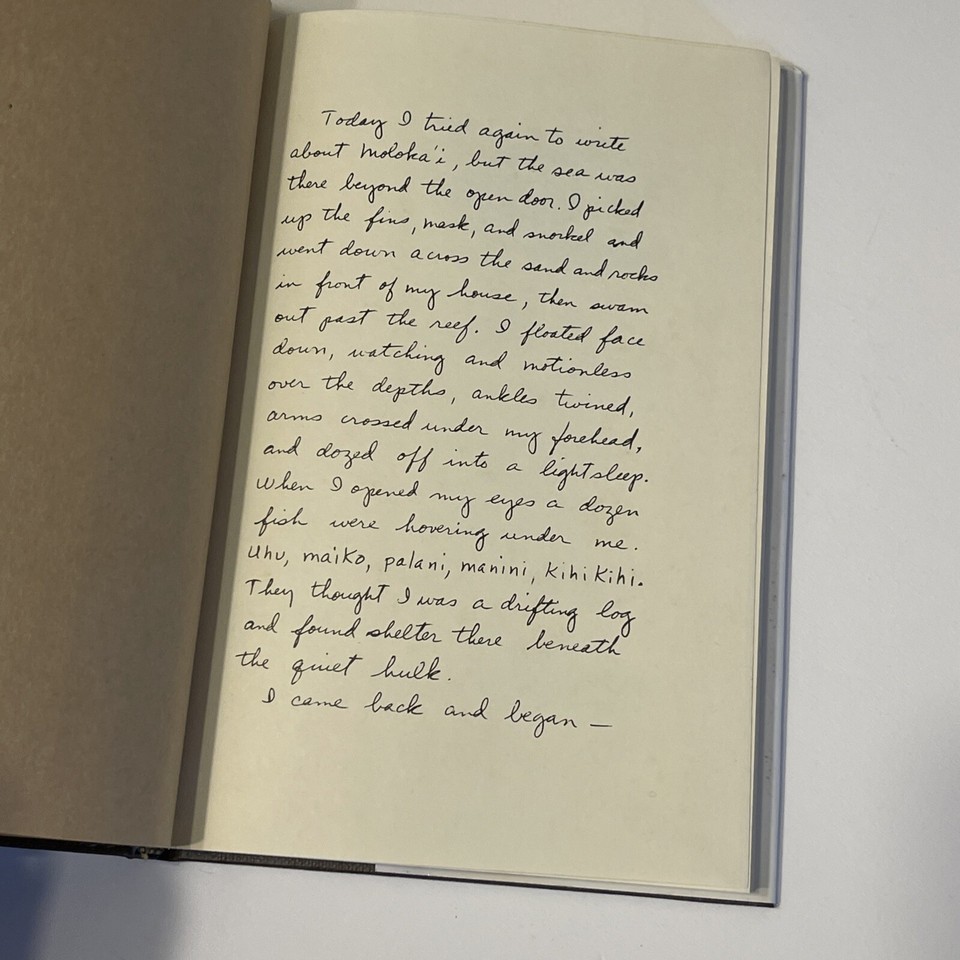 Today I tried again to write
about Moloka'i, but the sea was
there beyond the open door. I picked
up the fins, mask, and snorkel and
went down across the sand and rocks
in front of my house, then swam
out past the reef. I floated face
down, watching and motionless
over the depths, ankles twined,
arms crossed under my forehead,
and dozed off into a light sleep.
When I opened my eyes a dozen
fish were hovering under me.
Uhu, maiko, palani, manini, Kihi Kihi.
They thought I was a drifting log
and found shelter there beneath
the quiet hulk.
I came back and began —